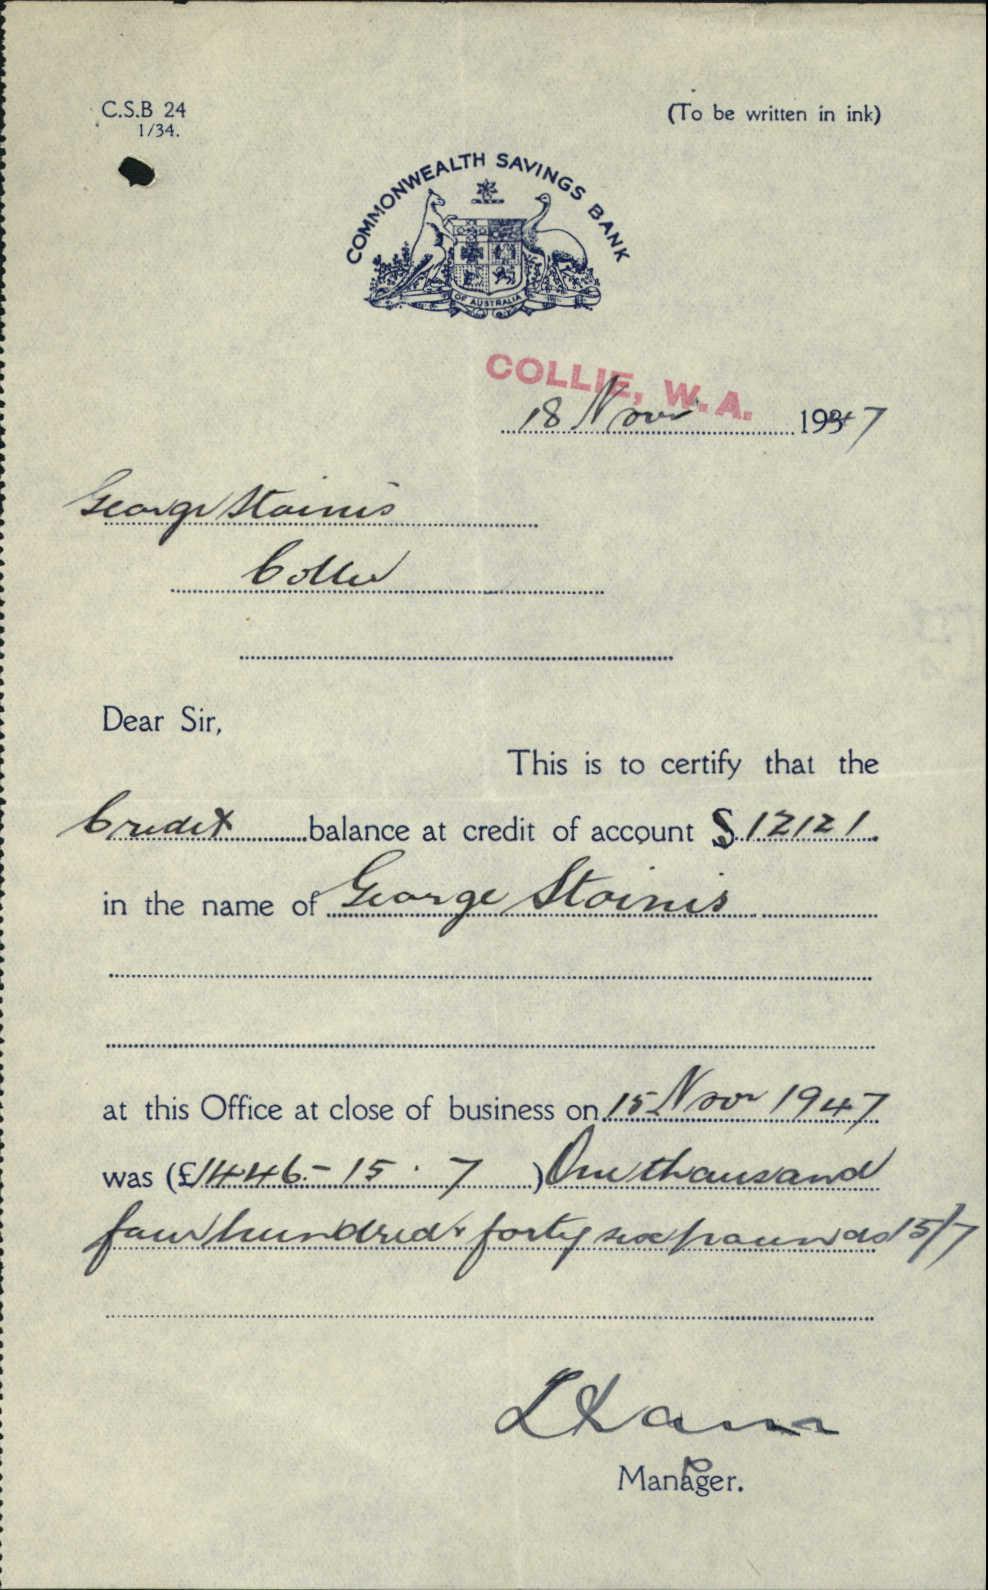 C.S.B 24
1/34.
(To be written in ink)
COMMONWEALTH SAVINGS BANK
OF AUSTRALIA
COLLIE, W.A.
18 Nov 1947
George Stainis
Collie
Dear Sir,
This is to certify that the
Credit balance at credit of account S 12121.
in the name of George Stainis
at this Office at close of business on 15 Nov 1947
was (£1446-15.7) One thousand
four hundred & forty six pounds 15/7
Manager.